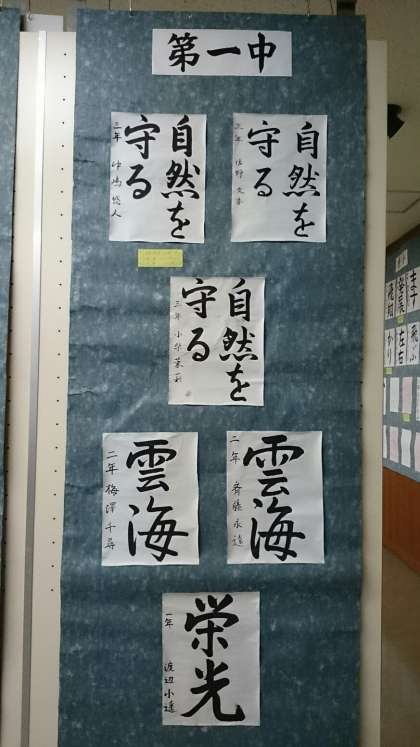 第一中
自然を
守る
三年 佐野
自然を
守る
三年 中嶋悠人
自然を
守る
三年 小柴茉莉
雲海
二年 齊藤永遠
雲海
二年 梅澤千尋
栄光
一年 渡辺小遥
ます
飛ぶ
発表
左右
かり